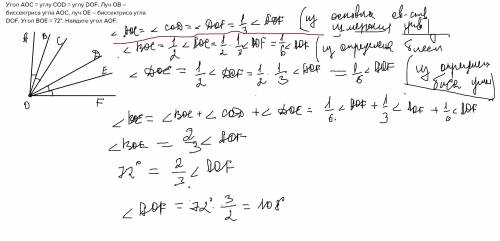 Угол AOC = углу COD = углу DOF. Луч OB –
биссектриса угла AOC, луч OE – биссектриса угла
DOF. Угол BOE = 72°. Найдите угол AOF.
A B C D E F O
∠AOC = ∠COD = ∠DOF = 1/3 ∠AOF (из основных св-ств измерения угла)
∠BOC = 1/2 ∠AOC = 1/2 · 1/3 ∠AOF = 1/6 ∠AOF (из определения биссек
∠DOE = 1/2 ∠DOF = 1/2 · 1/3 ∠AOF = 1/6 ∠AOF (из определен
∠BOE = ∠BOC + ∠COD + ∠DOE = 1/6 ∠AOF + 1/3 ∠AOF + 1/6 ∠AOF
∠BOE = 2/3 ∠AOF
72° = 2/3 ∠AOF
∠AOF = 72° · 3/2 = 108°